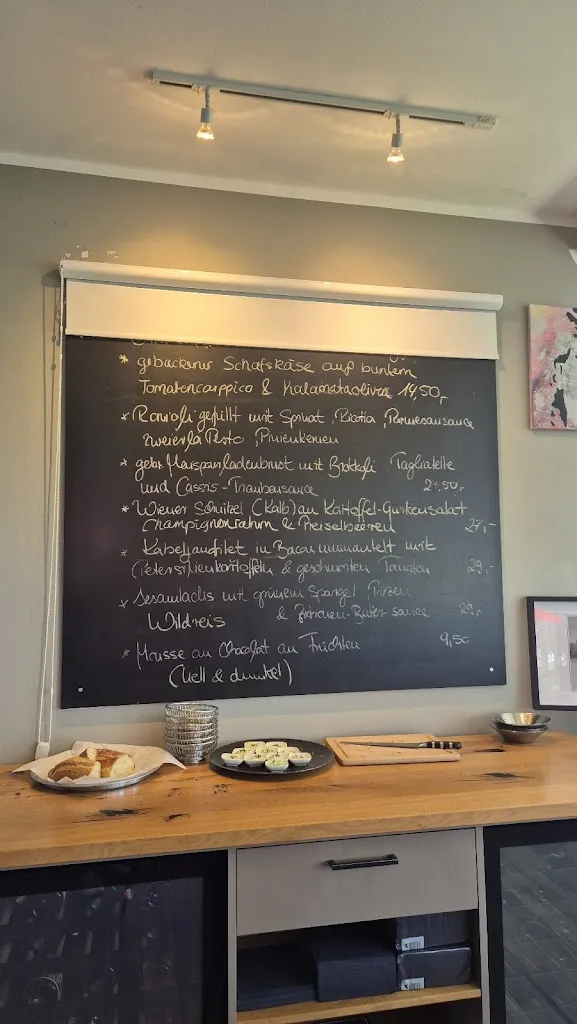 * gebackener Schafskäse auf buntem
Tomatencarppico & Kalamataoliven 14,50,-
* Ravioli gefüllt mit Spinat, Ricotta, Parmesansauce
zweierlei Pesto, Pinienkernen
* gebr. Maispoulardenbrust mit Brokkoli, Tagliatelle
und Cassis-Traubensauce 24,50,-
* Wiener Schnitzel (Kalb) an Kartoffel-Gurkensalat
Champignonrahm & Preiselbeeren 27,-
* Kabeljaufilet im Baconmantel mit
Petersilienkartoffeln & geschmorten Tomaten 29,-
* Sesamlachs mit grünem Spargel,
Wildreis & Zitronen-Butter-sauce 29,-
* Mousse au Chocolat an Früchten 9,50
(hell & dunkel)